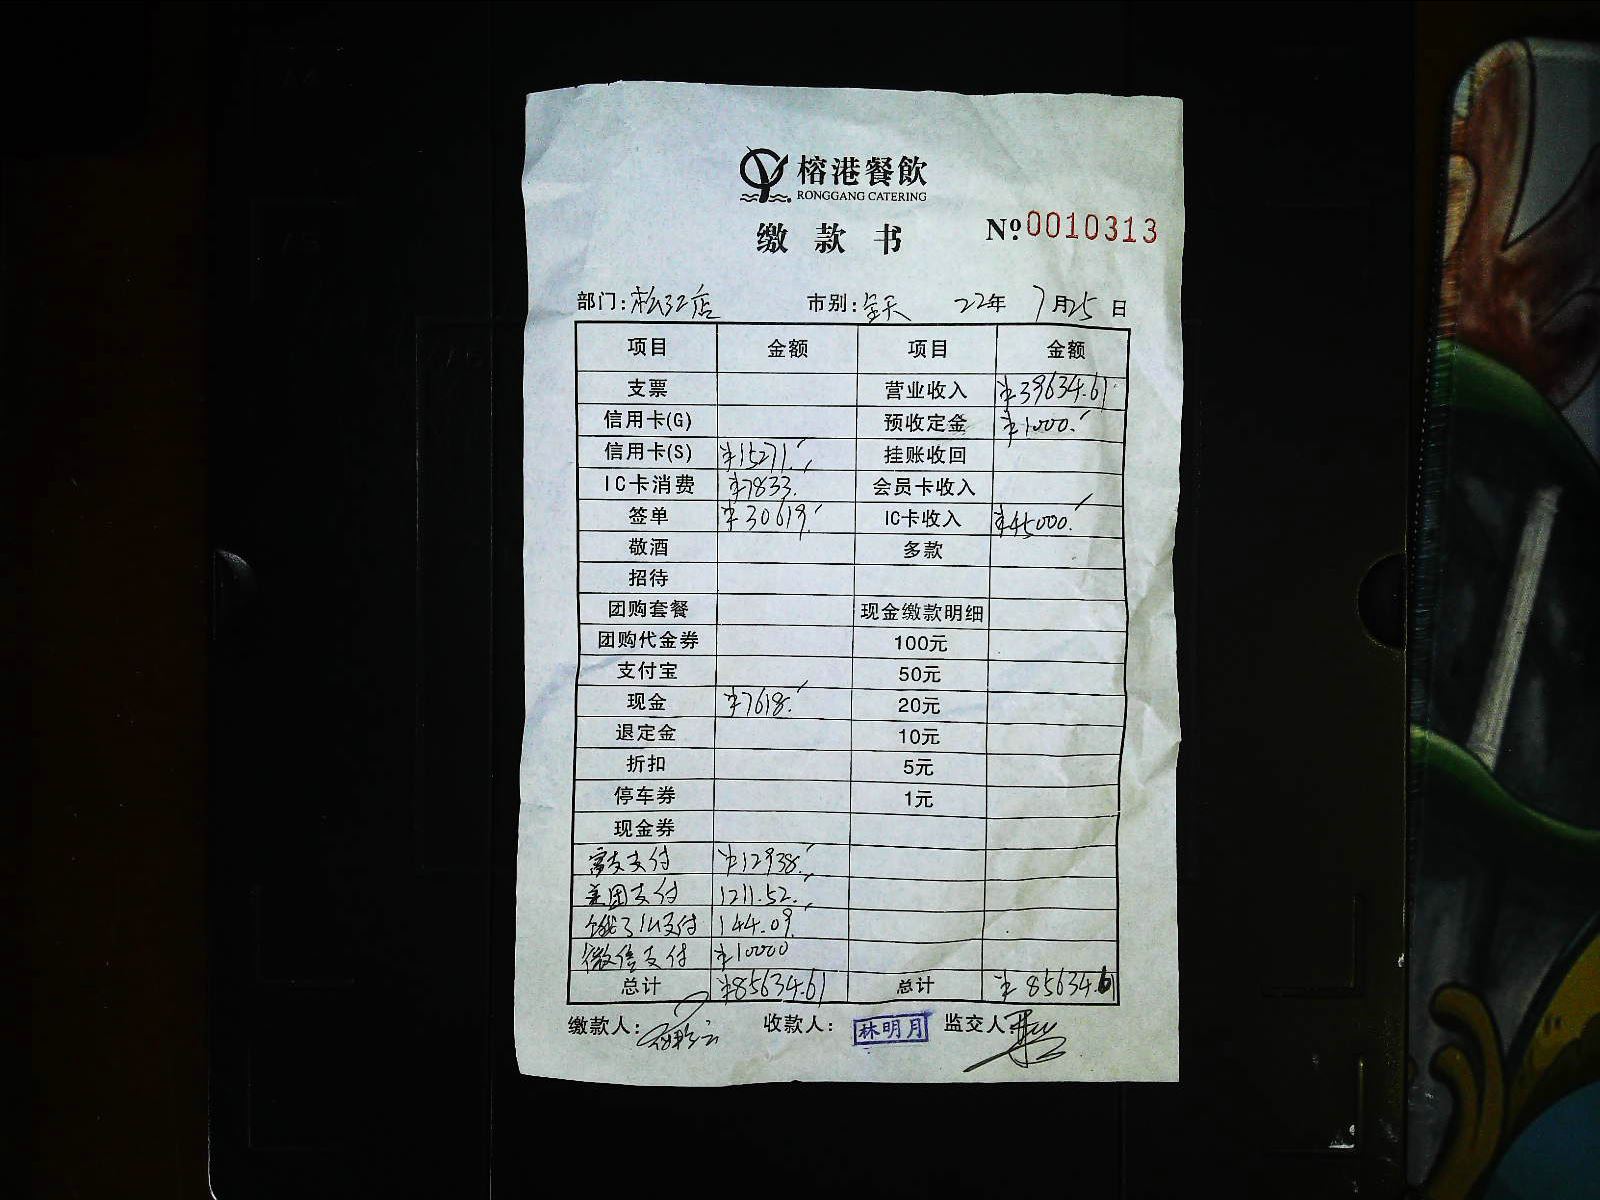 榕港餐飲
RONGGANG CATERING
缴款书 №0010313
部门:松江店 市别:全天 22年 7月25日
项目 金额 项目 金额
支票 营业收入 ¥39634.61
信用卡(G) 预收定金 ¥1000.
信用卡(S) ¥15271. 挂账收回
IC卡消费 ¥7833. 会员卡收入
签单 ¥30619. IC卡收入 ¥45000.
敬酒 多款
招待
团购套餐 现金缴款明细
团购代金券 100元
支付宝 50元
现金 ¥7618. 20元
退定金 10元
折扣 5元
停车券 1元
现金券
富友支付 ¥12938.
美团支付 1211.52.
饿了么支付 144.09.
微信支付 ¥10000
总计 ¥85634.61 总计 ¥85634.61
缴款人: 收款人: 林明月 监交人